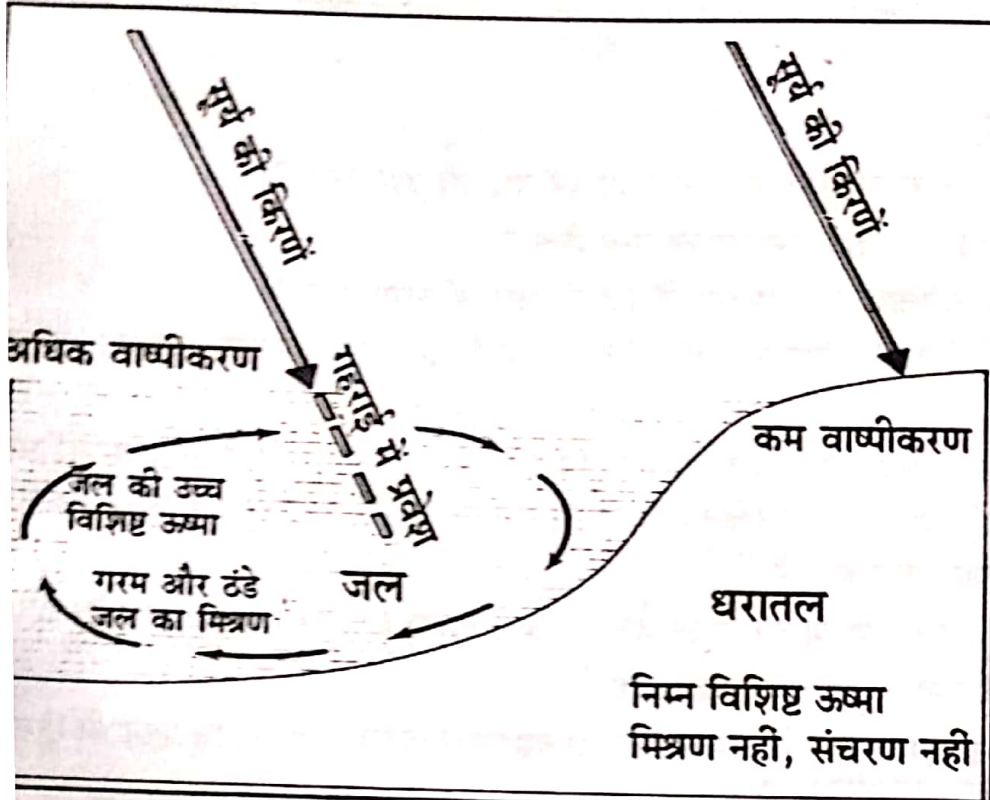 सूर्य की किरणें
सूर्य की किरणें
अधिक वाष्पीकरण
गहराई में प्रवेश
कम वाष्पीकरण
जल की उच्च
विशिष्ट ऊष्मा
गरम और ठंडे
जल का मिश्रण
जल
धरातल
निम्न विशिष्ट ऊष्मा
मिश्रण नहीं, संचरण नहीं